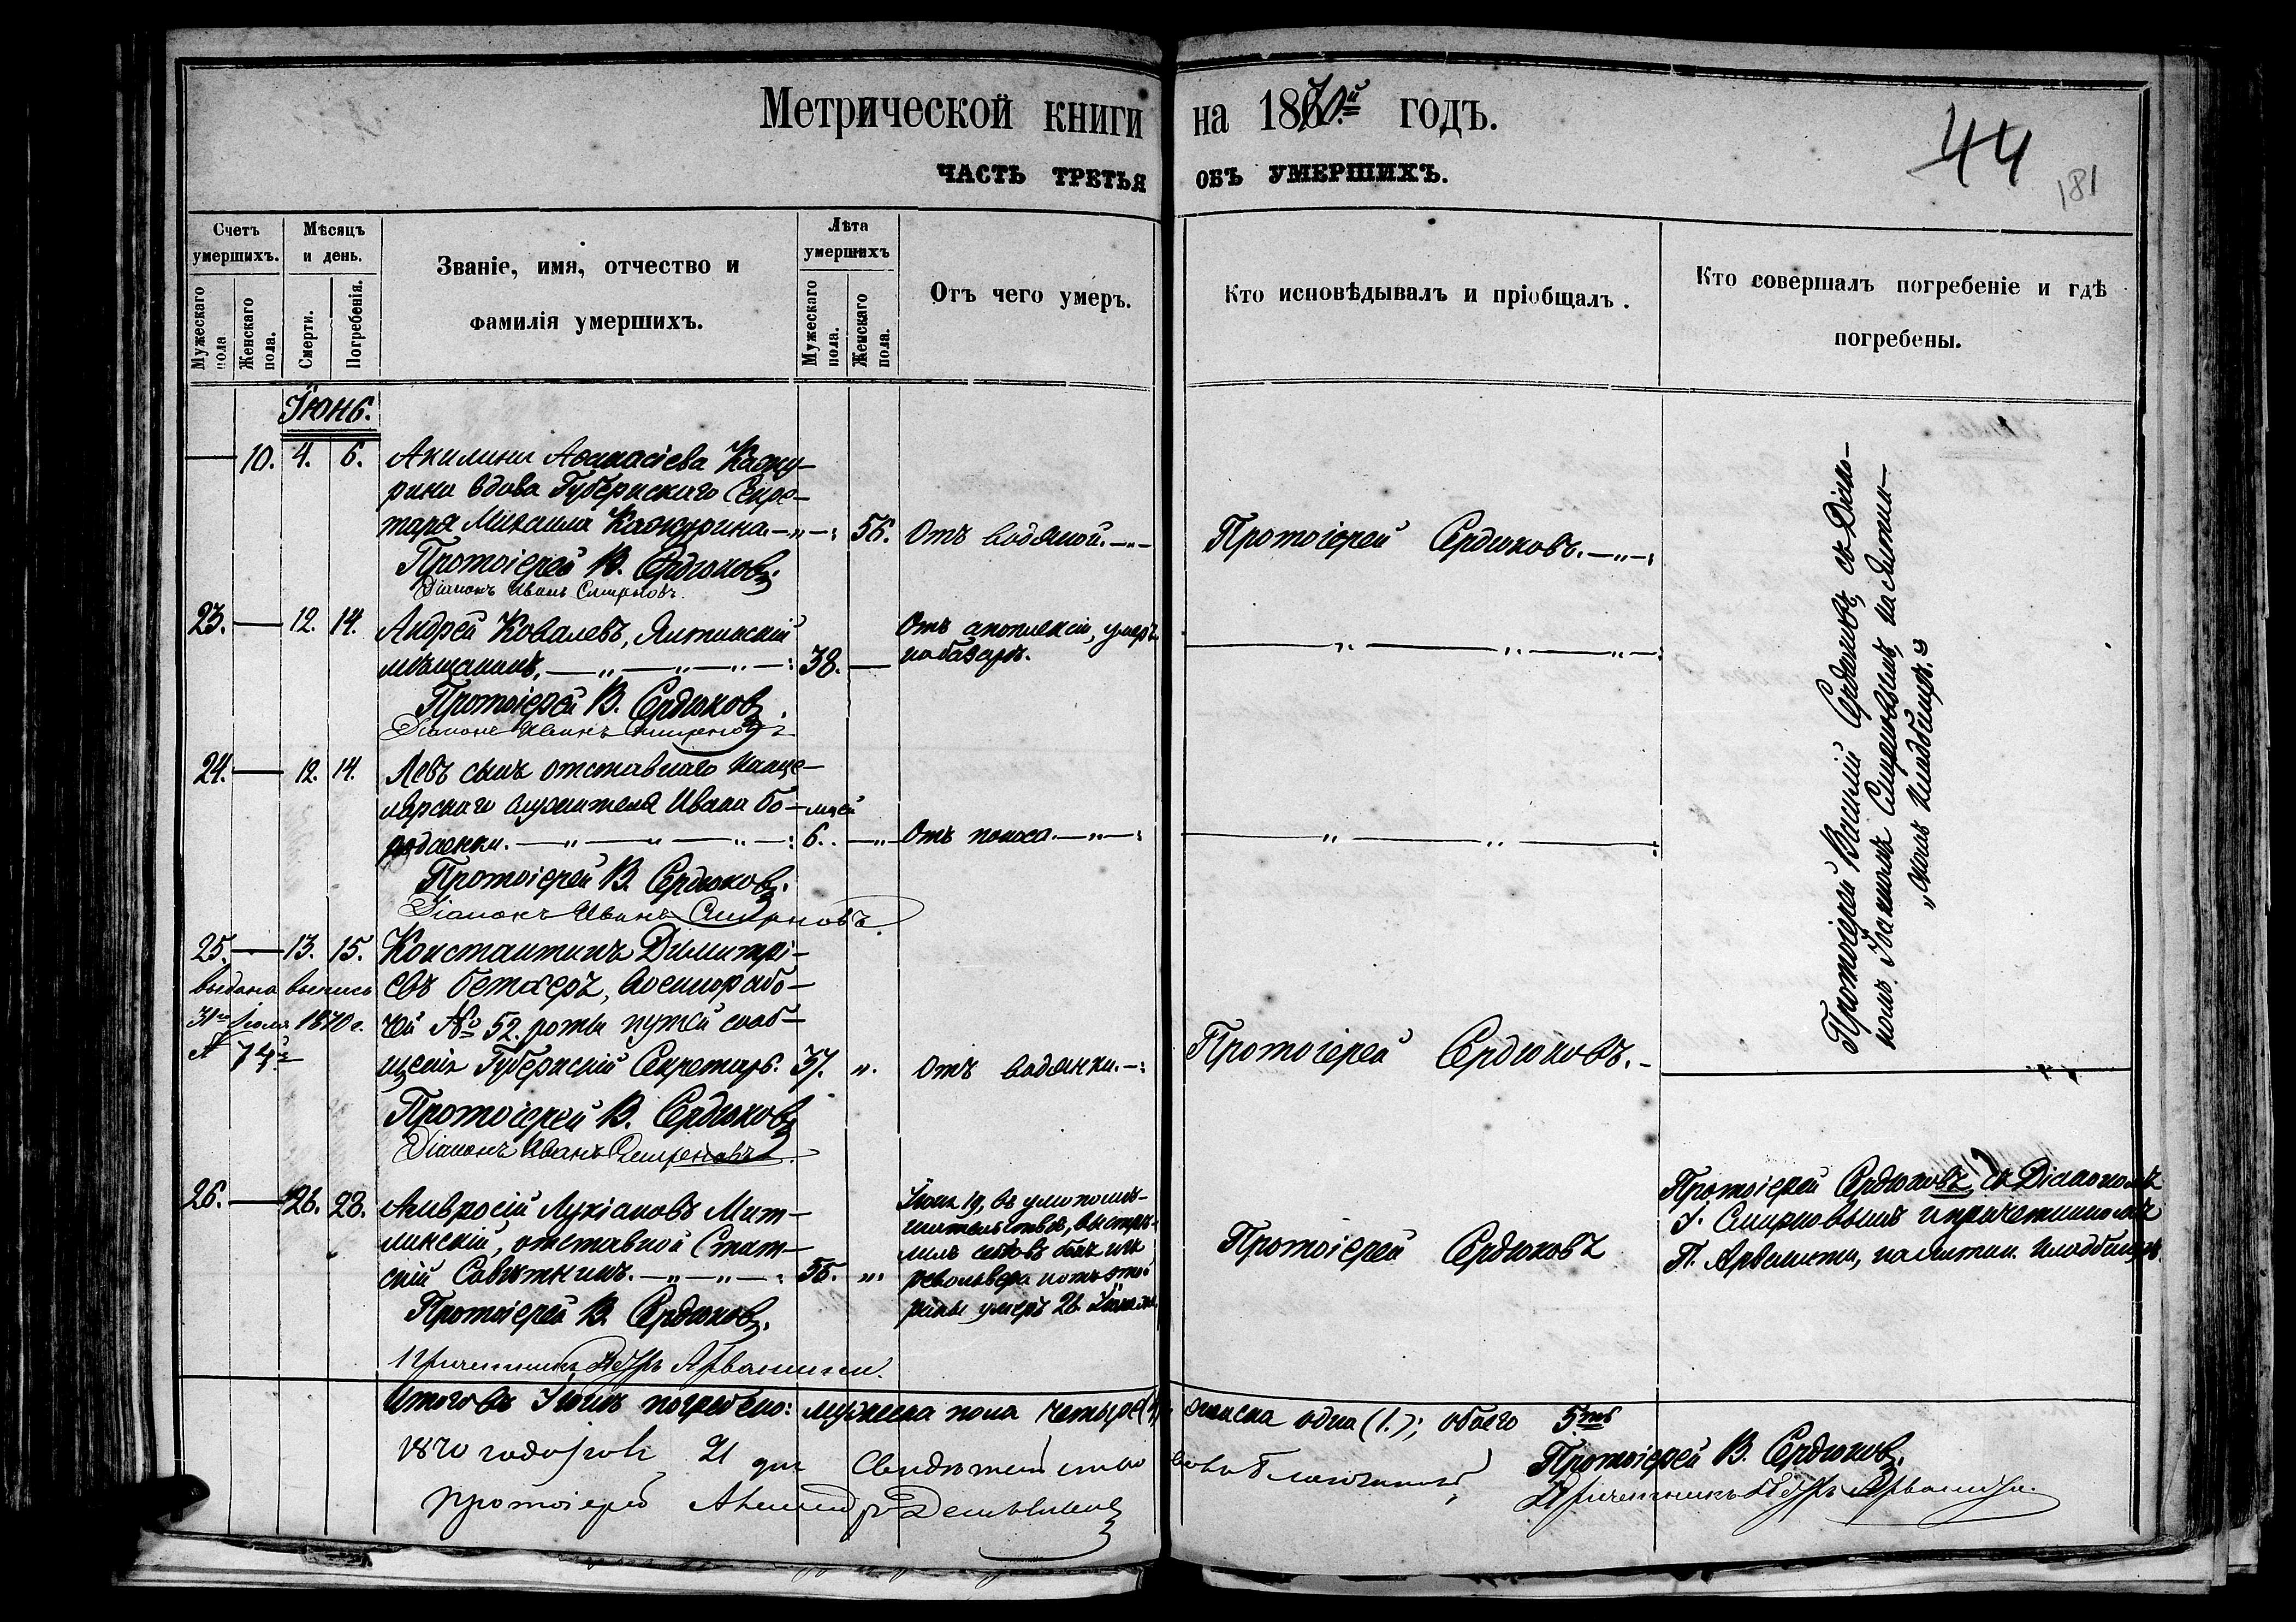 Метрической книги на 1870й годъ.
44
181
ЧАСТЬ ТРЕТЬЯ ОБЪ УМЕРШИХЪ.
Счетъ умершихъ.
Мужескаго пола
Женскаго пола.
Мѣсяцъ и день.
Смерти.
Погребенія.
Званіе, имя, отчество и
фамилія умершихъ.
Лѣта умершихъ
Мужескаго пола.
Женскаго пола.
Отъ чего умеръ.
Кто исповѣдывалъ и пріобщалъ.
Кто совершалъ погребеніе и гдѣ
погребены.
Іюнь.
— 10. 4. 6. Акилина Аѳанасіева Кашу-
рина вдова Губернскаго Секре-
таря Михаила Кашурина — 56. Отъ водяной. Протоіерей Сердюковъ.
Протоіерей В. Сердюковъ.
Діаконъ Иванъ Смирновъ.
23. — 12. 14. Андрей Ковалевъ, Ялтинскій Отъ апоплексіи, умеръ
мѣщанинъ, — 38. — на базарѣ.
Протоіерей В. Сердюковъ.
Діаконъ Иванъ Смирновъ
24. — 12. 14. Левъ сынъ отставнаго канце-
лярскаго служителя Ивана Бо- мцей
родаенки. — 6. — Отъ поноса.
Протоіерей В. Сердюковъ.
Діаконъ Иванъ Смирновъ.
25. — 13. 15. Константинъ Димитрі-
выдана выпись евъ Бетхеръ, военнорабо-
31го Іюля 1870 г. чей № 52. роты путей сооб-
№ 74й щенія Губернскій Секретарь. 37. Отъ водянки. Протоіерей Сердюковъ.
Протоіерей В. Сердюковъ
Діаконъ Иванъ Смирновъ
Протоіерей Василій Сердюковъ, съ Діако-
номъ Іоанномъ Смирновымъ, на Ялтин-
скомъ кладбищѣ.
26. — 26. 28. Амвросій Лукіановъ Мит-
линскій, отставной Стат-
скій Совѣтникъ. — 55.
Іюня 19, въ умопомѣ-
шательствѣ, выстрѣ-
лилъ себѣ въ бокъ изъ
револьвера и отъ этой
раны умеръ 26 Іюня
Протоіерей Сердюковъ
Протоіерей Сердюковъ съ Діакономъ
І. Смирновымъ и причетникомъ
П. Арванити, на Ялтин. кладбищѣ.
Протоіерей В. Сердюковъ.
Причетникъ Петръ Арванити.
Итого въ Іюнѣ погребено: мужеска пола четыре (4), женска одна (1.); обоего 5.ть
1870 года Іюля 21 дня Свидѣтельствовалъ Благочинный
Протоіерей В. Сердюковъ.
Протоіерей
Причетникъ Петръ Арванити.